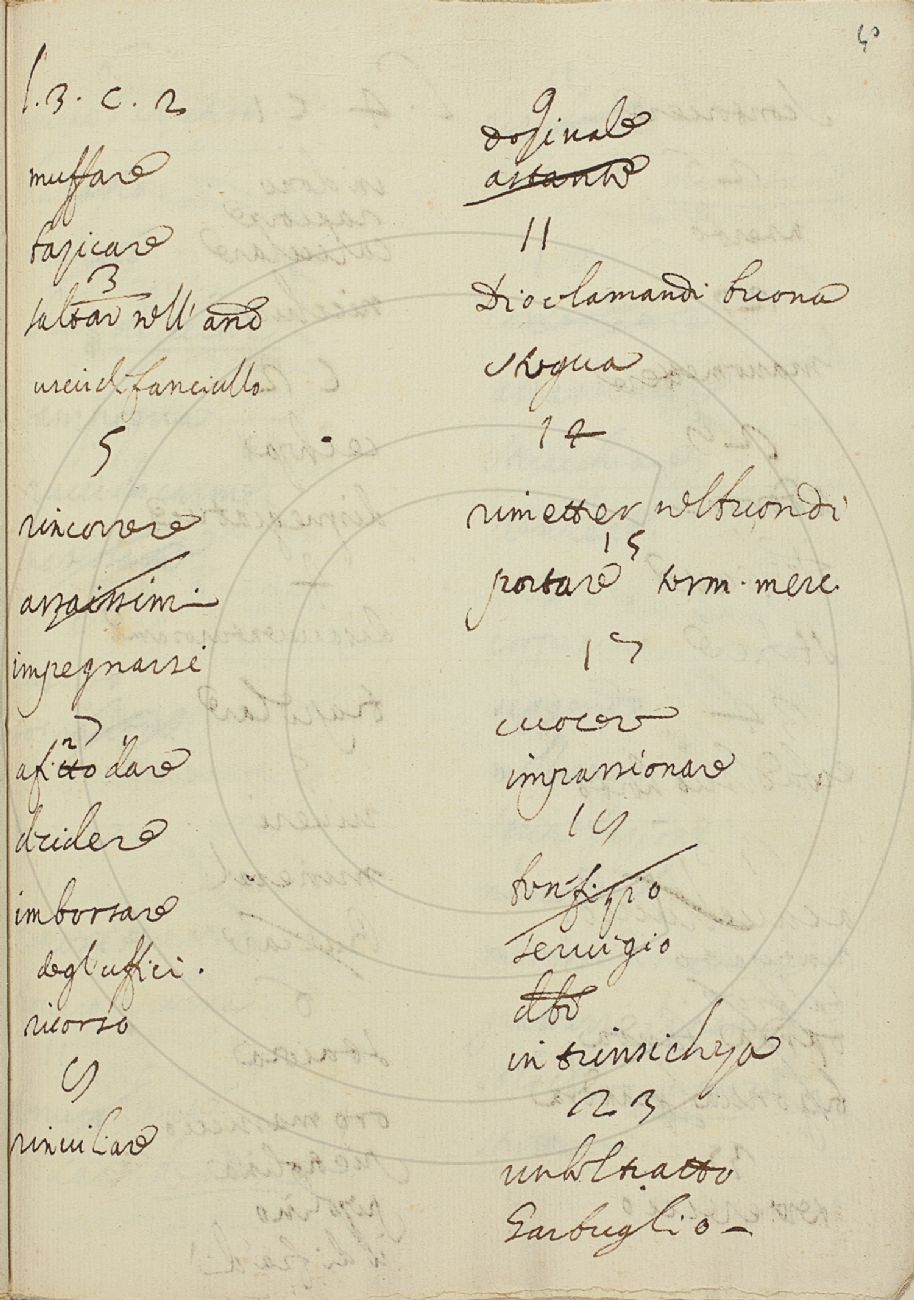 40
l. 3. c. 2
muffare
bazicare
3
saltar nell' and
uscir di fanciullo
5
rincorrere
assaissimi
impegnarsi
7
afitto dare
decidere
imborsare
degl uffici.
ricorso
9
rinviliare
9
dozinale
astante
11
Dio vel mandi buona
stregua
12
rimetter nel buon dì
15
portare term. merc.
17
cuocer
impassionare
19
servigio
intrinsichezza
23
un bel tratto
Garbuglio